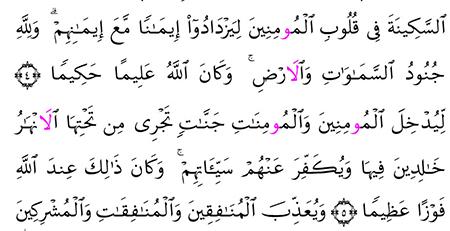 اَ۬لسَّكِينَةَ فِى قُلُوبِ اِ۬لْمُومِنِينَ لِيَزْدَادُوٓاْ إِيمَٰنًا مَّعَ إِيمَٰنِهِمْ ۗ وَلِلهِ
جُنُودُ اُ۬لسَّمَٰوَٰتِ وَالَارْضِ ۚ وَكَانَ اَ۬للَّهُ عَلِيمًا حَكِيمًا ﴿٤﴾
لِّيُدْخِلَ اَ۬لْمُومِنِينَ وَالْمُومِنَٰتِ جَنَّٰتٍ تَجْرِى مِن تَحْتِهَا اَ۬لَانْهَٰرُ
خَٰلِدِينَ فِيهَا وَيُكَفِّرَ عَنْهُمْ سَيِّـَٔاتِهِمْ ۚ وَكَانَ ذَٰلِكَ عِندَ اَ۬للَّهِ
فَوْزًا عَظِيمًا ﴿٥﴾ وَيُعَذِّبَ اَ۬لْمُنَٰفِقِينَ وَالْمُنَٰفِقَٰتِ وَالْمُشْرِكِينَ